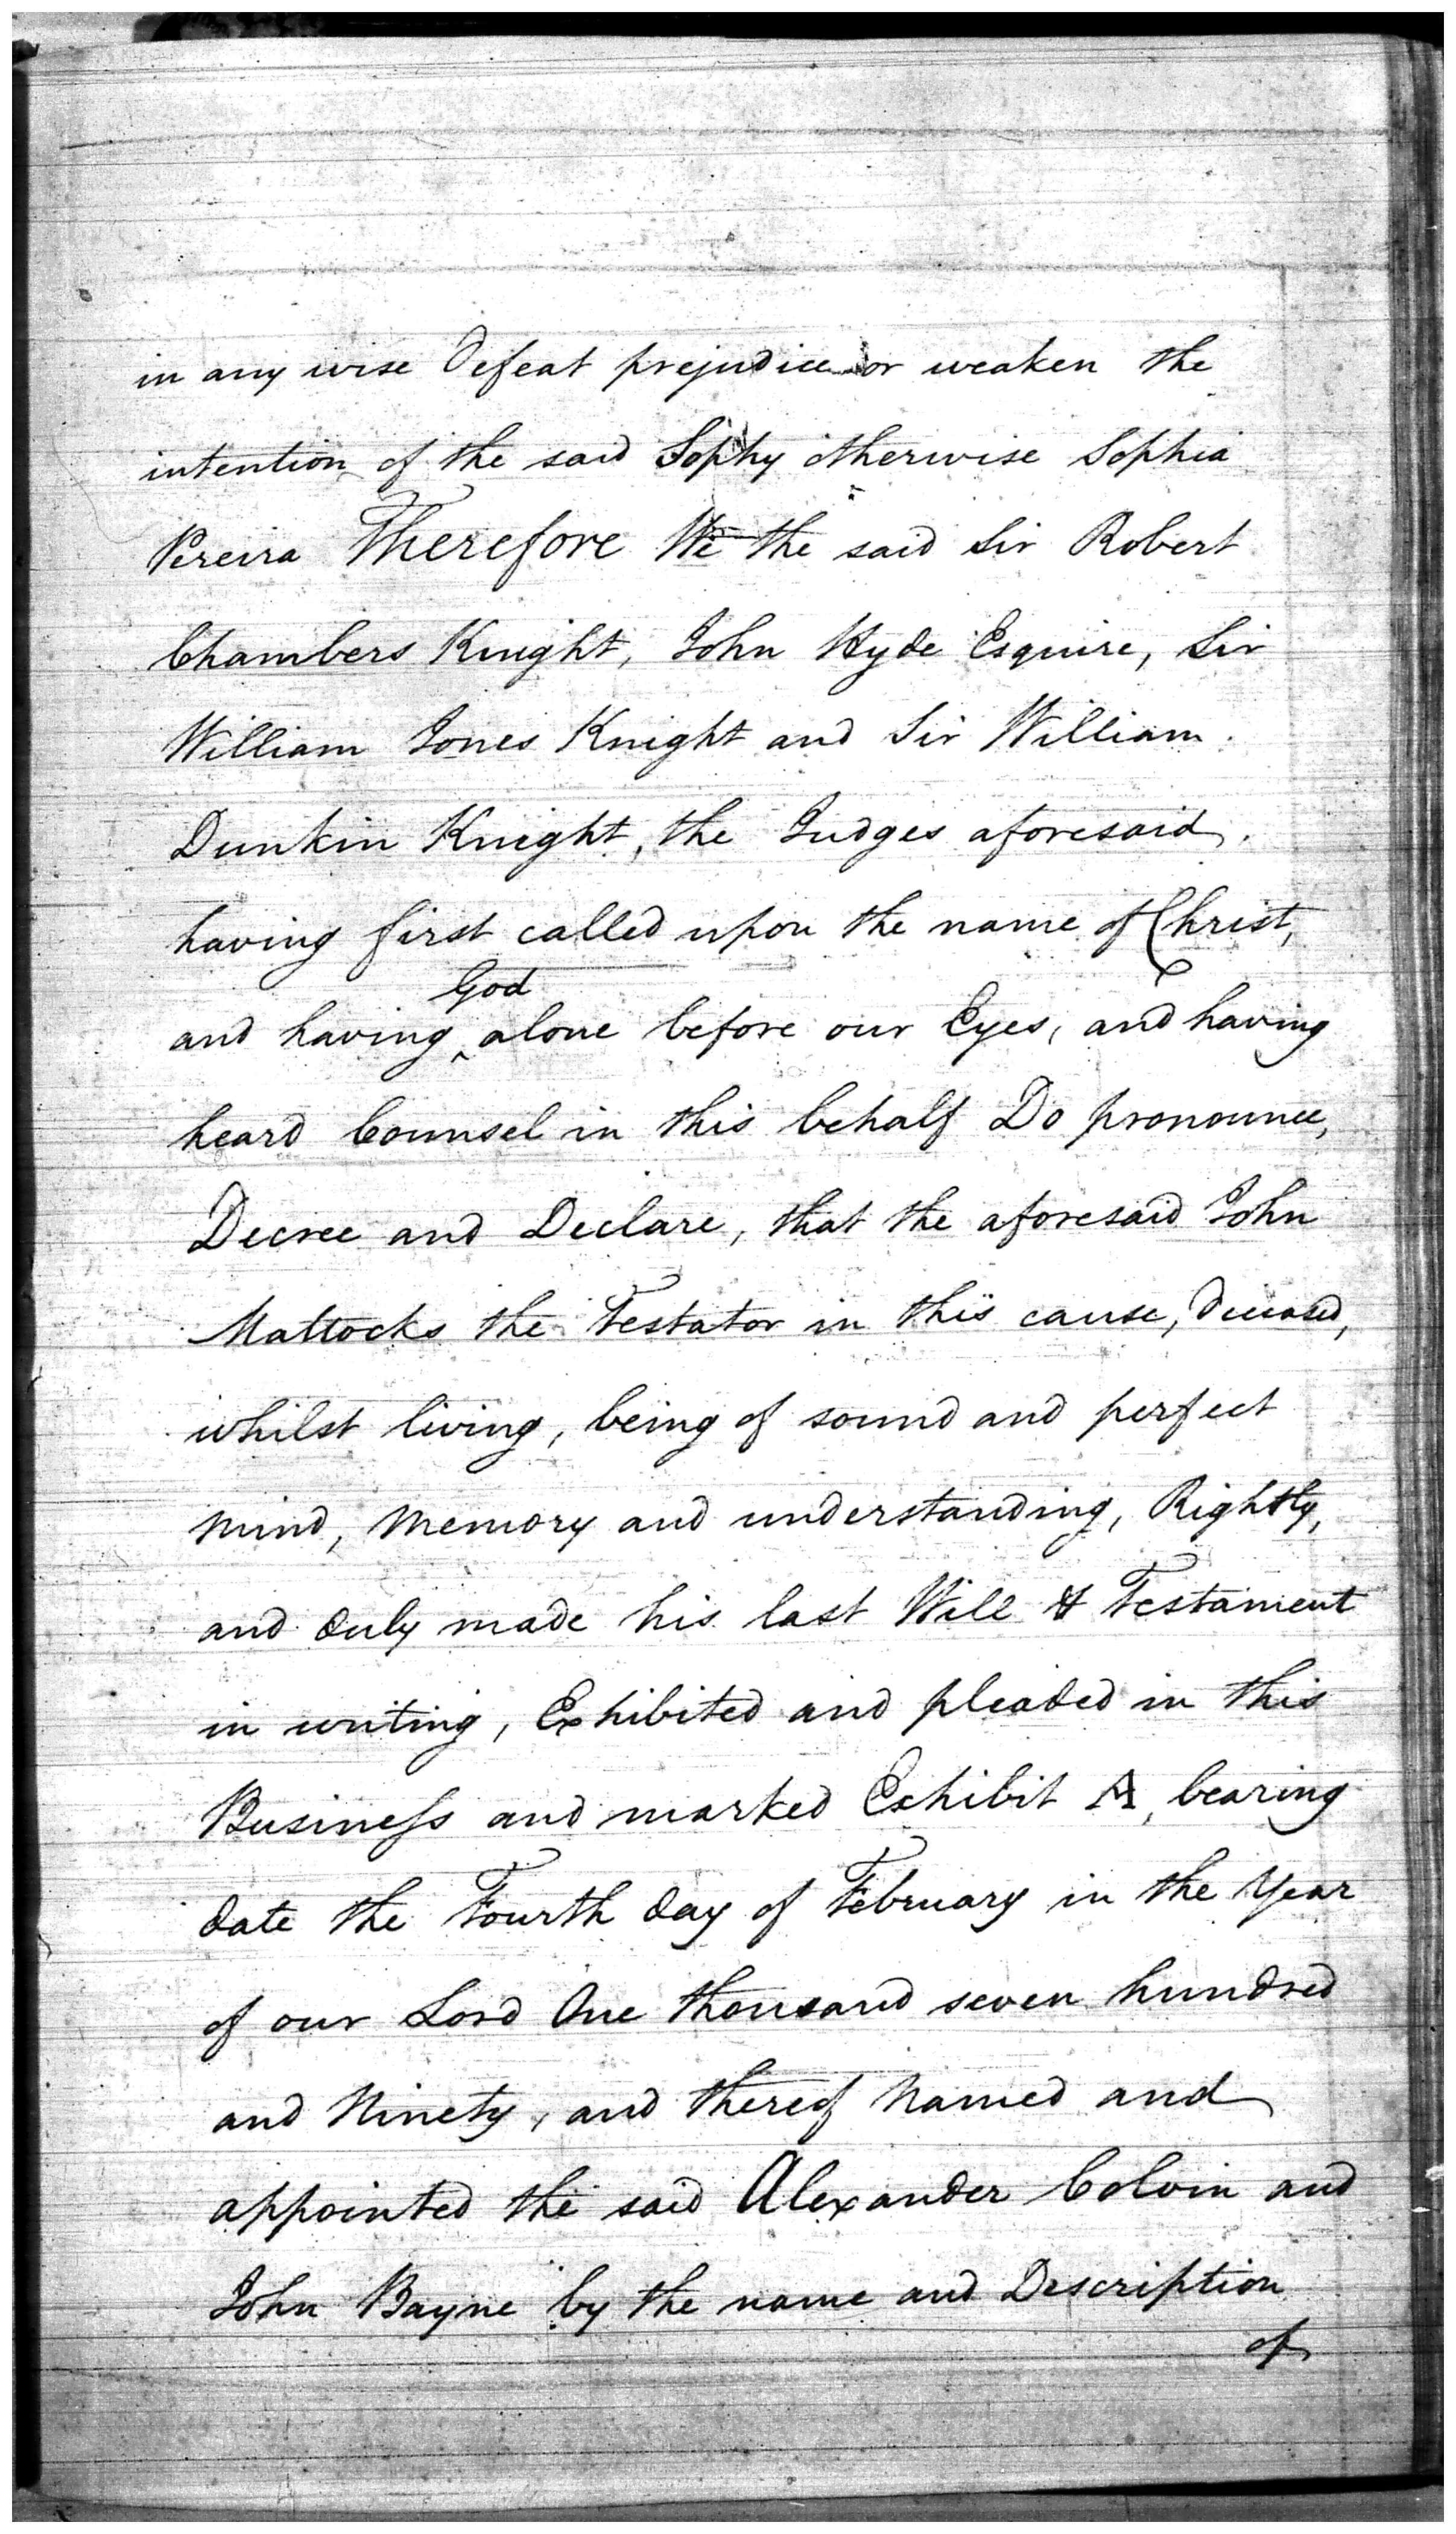 in any wise Defeat prejudice or weaken the
intention of the said Sophy otherwise Sophia
Pereira Therefore We the said Sir Robert
Chambers Knight, John Hyde Esquire, Sir
William Jones Knight and Sir William
Dunkin Knight, the Judges aforesaid,
having first called upon the name of Christ,
God
and having ^ alone before our Eyes, and having
heard Counsel in this behalf Do pronounce,
Decree and Declare, that the aforesaid John
Mattocks the Testator in this cause, Deceased,
whilst living, being of sound and perfect
mind, Memory and understanding, Rightly,
and duly made his last Will & Testament
in writing, Exhibited and pleaded in this
Business and marked Exhibit A, bearing
date the Fourth day of February in the Year
of our Lord One thousand seven hundred
and Ninety, and thereof Named and
appointed the said Alexander Colvin and
John Bayne by the name and Description
of